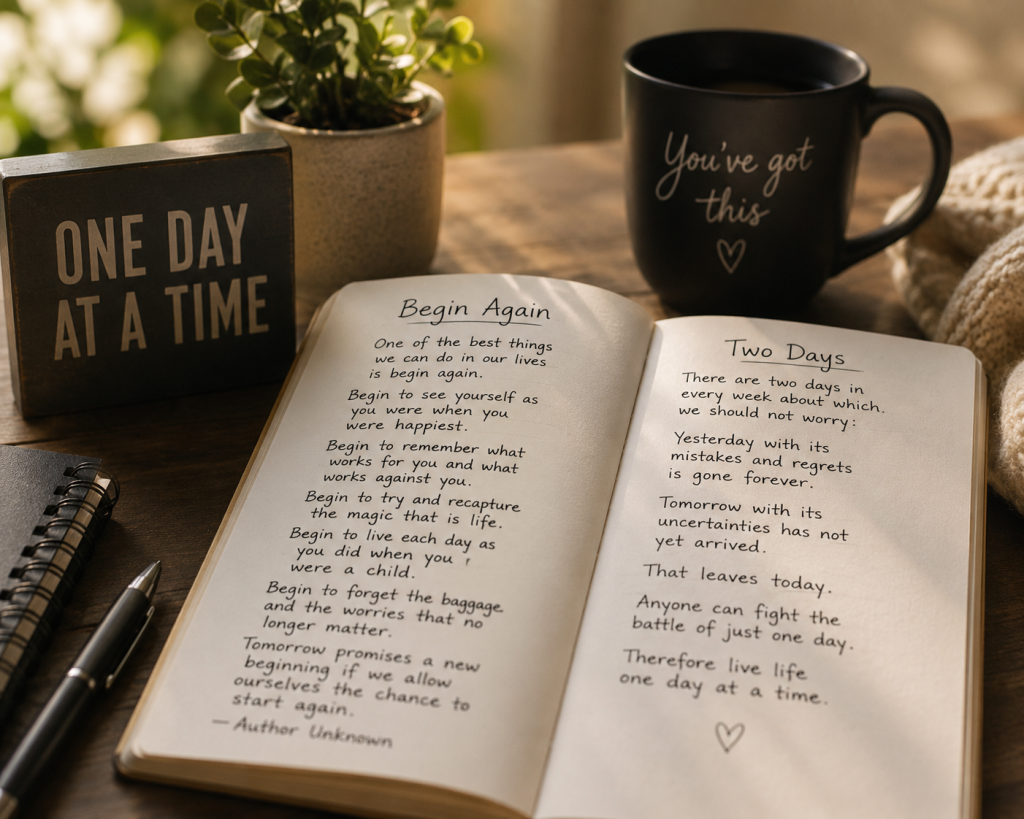 ONE DAY
AT A TIME
You've got
this
Begin Again
One of the best things
we can do in our lives
is begin again.
Begin to see yourself as
you were when you
were happiest.
Begin to remember what
works for you and what
works against you.
Begin to try and recapture
the magic that is life.
Begin to live each day as
you did when you
were a child.
Begin to forget the baggage
and the worries that no
longer matter.
Tomorrow promises a new
beginning if we allow
ourselves the chance to
start again.
— Author Unknown
Two Days
There are two days in
every week about which.
we should not worry:
Yesterday with its
mistakes and regrets
is gone forever.
Tomorrow with its
uncertainties has not
yet arrived.
That leaves today.
Anyone can fight the
battle of just one day.
Therefore live life
one day at a time.